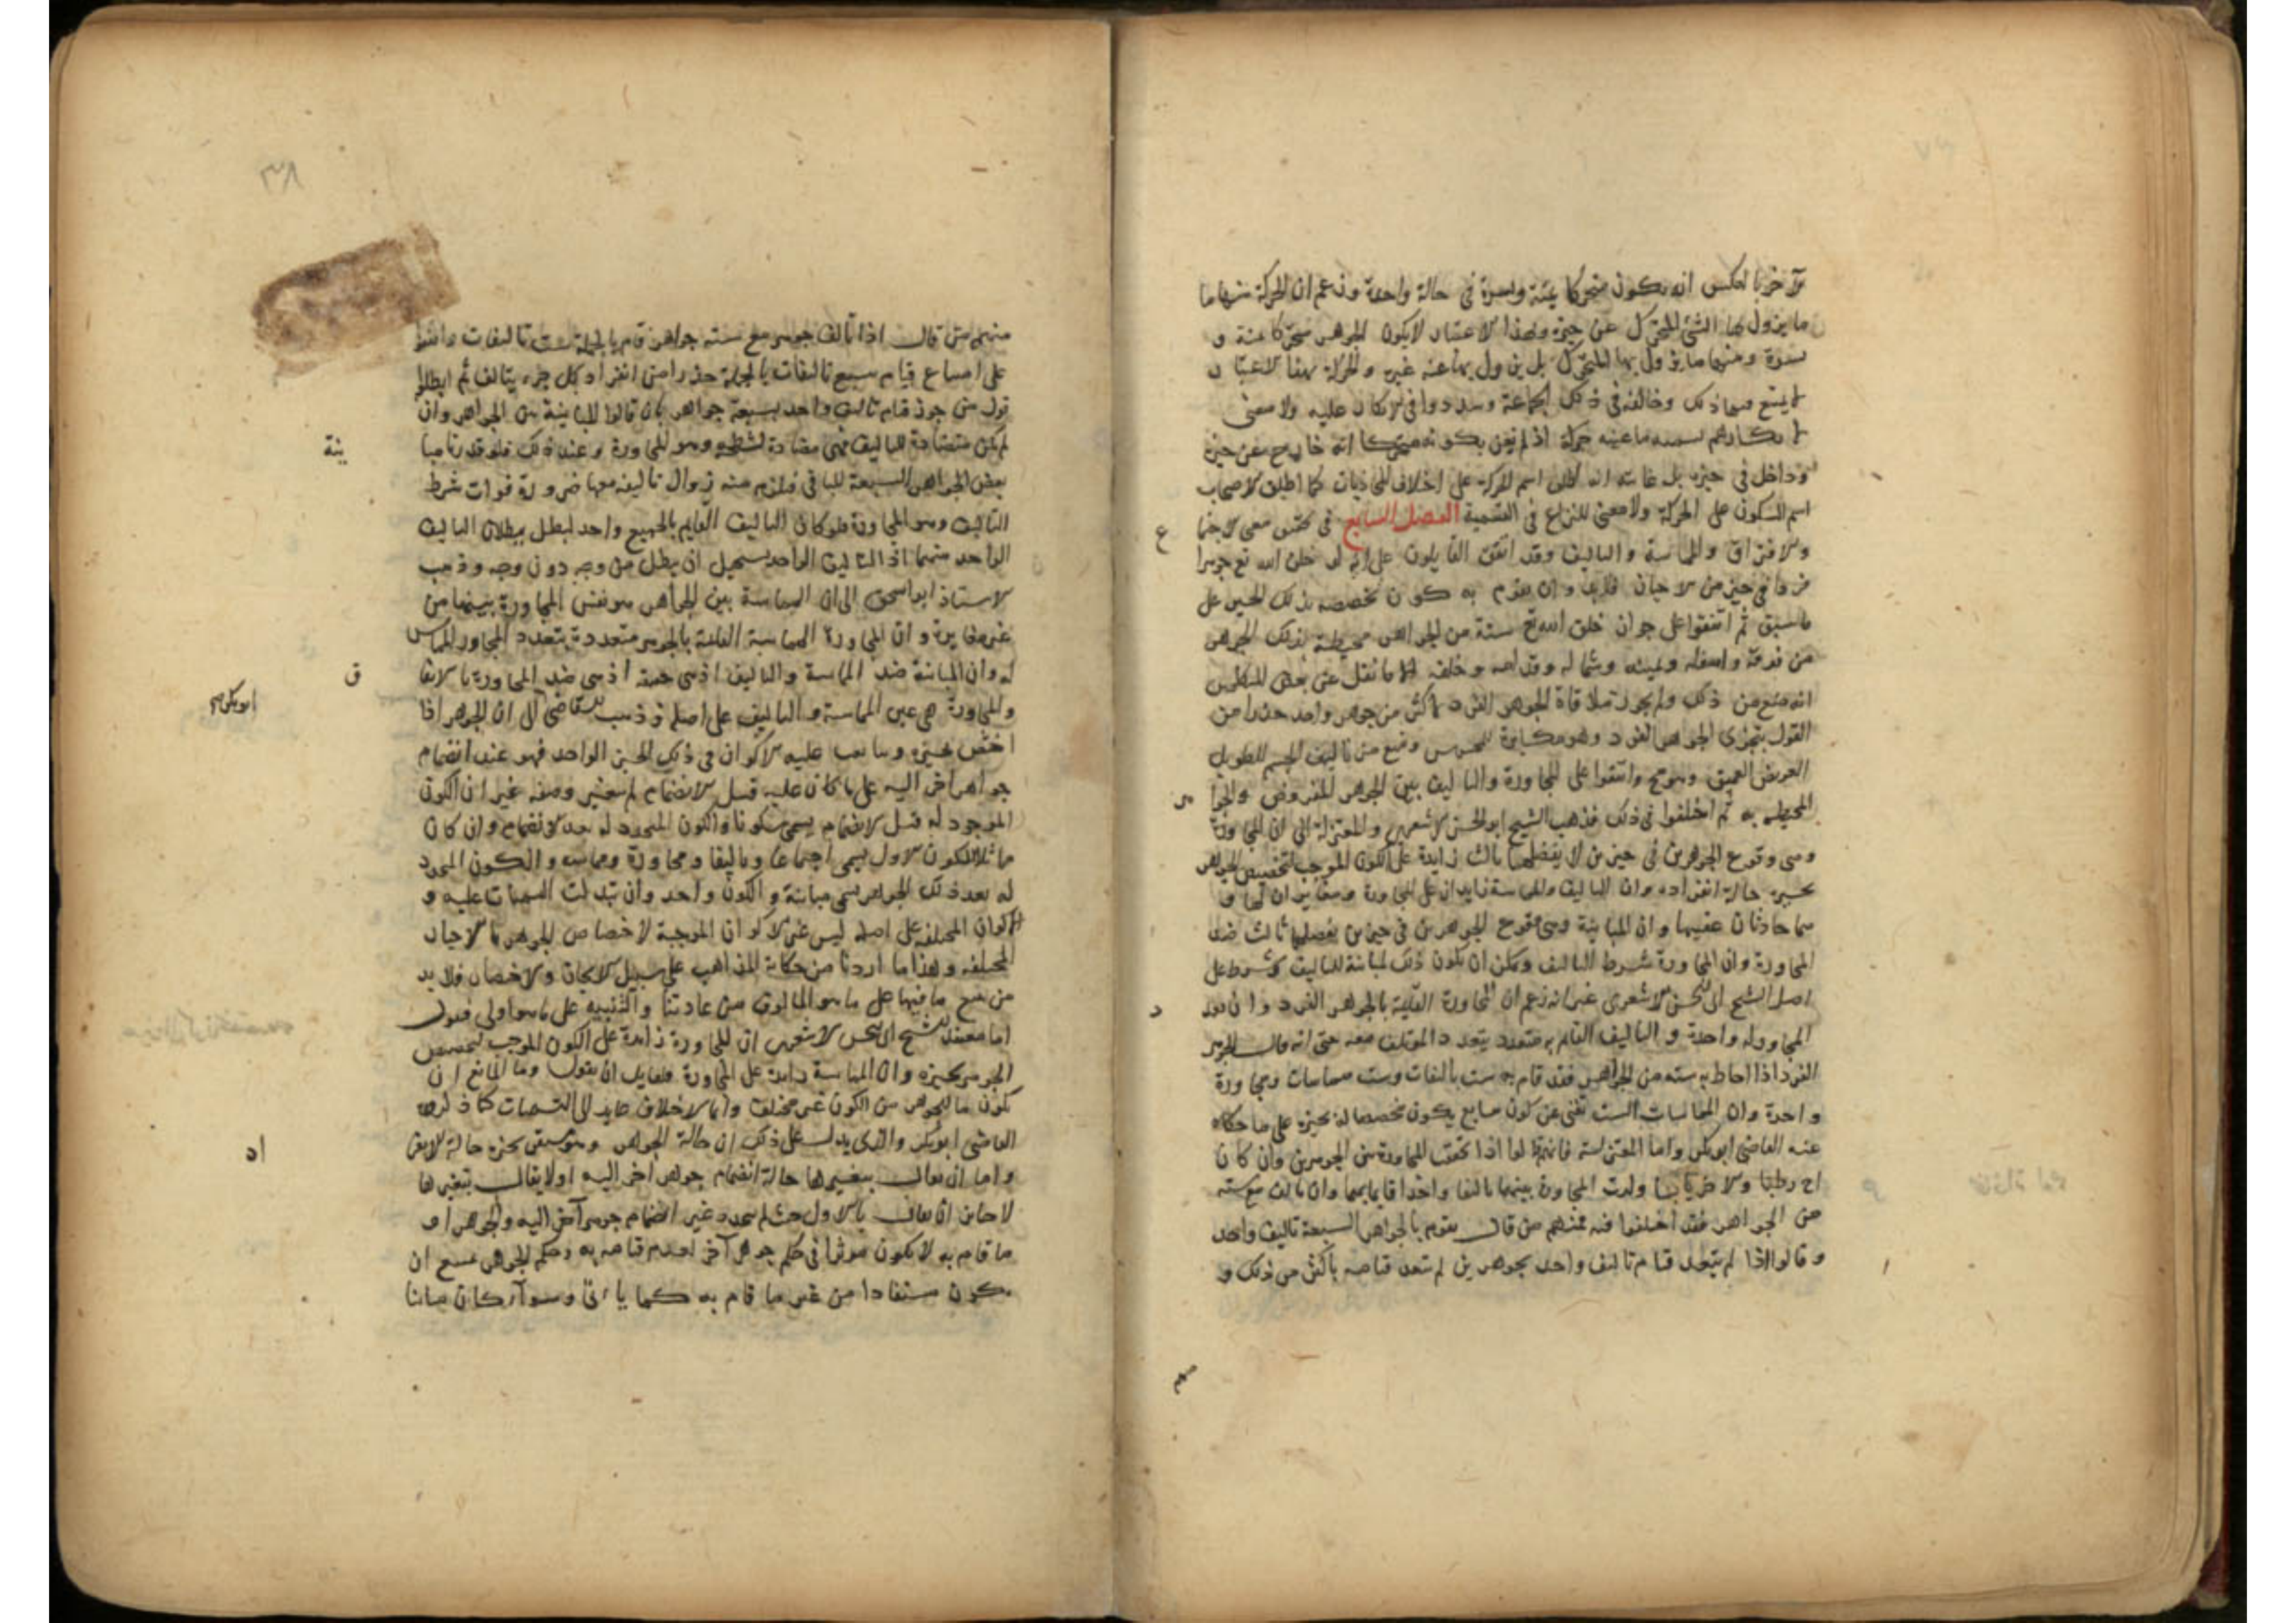 والاخر بالعكس ان يكون متحركا يمنة ويسرة في حالة واحدة وزعم ان الحركة منها ما
ما يزول بها الشئ المتحرك عن حيزه وبهذا الاعتبار لا يكون الجوهر متحركا يمنة و
يسرة ومنها ما يزول بها المتحرك بل يزول بها عنه غيره والحركة بهذا الاعتبار
لا يمتنع فيها ذلك وخالفه في ذلك الجماعة وشددوا في الانكار عليه ولا معنى
لانكارهم تسميه ما عينه حركة اذ لم يعن بكونه متحركا انه خارج عن حيزه
وداخل في حيزه بل غايته انه اطلق اسم الحركة على اختلاف المحاذيات كما اطلق الاصحاب
اسم السكون على الحركة ولا معنى للنزاع في التسمية الفصل السابع في تحقيق معنى الاجتما
ع
والافتراق والمماسة والتاليف وقد اتفق القايلون على انه لو خلق الله تع جوهرا
فردا في حيز من الاحيان فلابد وان يقوم به كون تخصصه بذلك الحيز على
ما سبق ثم اتفقوا على جوان خلق الله تع ستة من الجواهر محيطة بذلك الجوهر
من فوقه واسفله ويمينه وشماله وقدامه وخلفه الا ما نقل عن بعض المتكلمين
انه منع من ذلك ولم يجوز ملاقاة الجوهر الفرد لاكثر من جوهر واحد حذرا من
القول بتجزى الجوهر الفرد وهو مكابرة للمحسوس ومنع من تاليف الجسم الطويل
العريض العميق وهو مح واتفقوا على المجاورة والتاليف بين الجوهر المفروض والجوا
هر
المحيطة به ثم اختلفوا في ذلك فذهب الشيخ ابو الحسن الاشعري والمعتزلة الى ان المجاورة
وهي وقوع الجوهرين في حيزين لا يفصلهما ثالث زايدة على الكون الموجب لتخصيص الجوهر
بحيزه حالة انفراده وان التاليف والمماسة زايدان على المجاورة ومغايران لها و
هما حادثان عقيبها وان المباينة وهي وقوع الجوهرين في حيزين يفصلهما ثالث ضد
المجاورة وان المجاورة شرط التاليف ويمكن ان يكون ذلك لمباينة التاليف كونه شرط على
اصل الشيخ ابي الحسن الاشعري غير انه زعم ان المجاورة القايمة بالجوهر الفرد وان تعدد
د
المجاور له واحدة والتاليف القايم به متعدد بتعدد المؤتلف معه حتى انه قال الجوهر
الفرد اذا احاط به سته من الجواهر فقد قام به ست تاليفات وست مماسات ومجاورة
واحدة وان المماسات الست تغنى عن كون سابع يكون مخصصا له بحيزه على ما حكاه
عنه القاضي ابوبكر واما المعتزلة فانهم قالوا اذا تحققت المجاورة بين الجوهرين وان كان
احدهما رطبا والاخر يابسا ولدت المجاورة بينهما تاليفا واحدا قايما بهما وان تالف مع سته
من الجواهر فقد اختلفوا فيه فمنهم من قال يقوم بالجواهر السبعة تاليف واحد
وقالوا اذا لم يتبعد قيام تاليف واحد بجوهرين لم يتعد قيامه باكثر من ذلك و
منهم
٣٨
منهم من قال اذا تالف جوهر مع سته جواهر قام بالجملة ست تاليفات واتفقوا
على امتناع قيام سبع تاليفات بالجملة حذرا من انفراد كل جزء بتالف ثم ابطلوا
قول من جوز قيام تاليف واحد بسبعة جواهر بان قالوا المباينة بين الجواهر وان
لم تكن متضادة للتاليف فهي مضادة لشطره وهو المجاورة وعند ذلك فلو قدرنا مبا
ينة
بعض الجواهر السبعة للباقي فيلزم منه زوال تاليفه معها ضرورة فوات شرط
التاليف وهو المجاورة فلو كان التاليف القايم بالجميع واحد لبطل ببطلان التاليف
الواحد منهما اذ التاليف الواحد يستحيل ان يبطل من وجه دون وجه وذهب
الاستاذ ابو اسحق الى ان المماسة بين الجواهر هو نفس المجاورة بينهما من
غير مغايرة وان المجاورة المماسة القايمة بالجوهر متعددة بتعدد المجاور المماس
له وان المباينة ضد المماسة والتاليف اذ هي ضد المجاورة بالاتفا
ق
والمجاورة هي عين المماسة والتاليف على اصله وذهب القاضي الى ان الجوهر اذا
ابوبكر صح
اختص بحيزه وتعاقب عليه الاكوان في ذلك الحيز الواحد فهو عند انضمام
جواهر اخر اليه على ما كان عليه قبل الانضمام لم يتغير وصفه غير ان الكون
الموجود له قبل الانضمام يسمى سكونا والكون المتجدد له بعد الانضمام وان كان
مماثلا للكون الاول يسمى اجتماعا وتاليفا ومجاورة ومماسه والكون المتجدد
له بعد ذلك الجوهر يسمى مباينة والكون واحد وان تبدلت التسميات عليه و
الاكوان المختلفه على اصله ليس غير الاكوان الموجبة لاختصاص الجوهر بالاحيان
المختلفه وهذا ما اردنا من حكاية المذاهب على سبيل الايجاز والاختصار فلا بد
من تتبع ما فيها على ما هو المالوف من عادتنا والتنبيه على ما هو اولى فنقول
اما معتقد الشيخ ابي الحسن الاشعري ان المجاورة زايدة على الكون الموجب لتخصيص
الجوهر بحيزه وان المماسة زايدة على المجاورة فلقايل ان يقول وما المانع ان
يكون ما للجوهر من الكون غير مختلف وانما الاختلاف عايد الى التسميات كما ذكره
القاضي ابوبكر والذي يدل على ذلك ان حالة الجوهر وهو مستقر بحيزه حالة الانفر
اد
واما ان يقال بتغيرها حالة انضمام جوهر اخر اليه او لا يقال بتغيرها
لا جايز ان يقال بالاول حيث لم يتجدد غير انضمام جوهر آخر اليه والجوهر او
ما قام به لا يكون موثرا في حكم جوهر آخر لعدم قيامه به وحكم الجوهر يمتنع ان
يكون مستفادا من غير ما قام به كما ياتي وسوآء كان مباينا